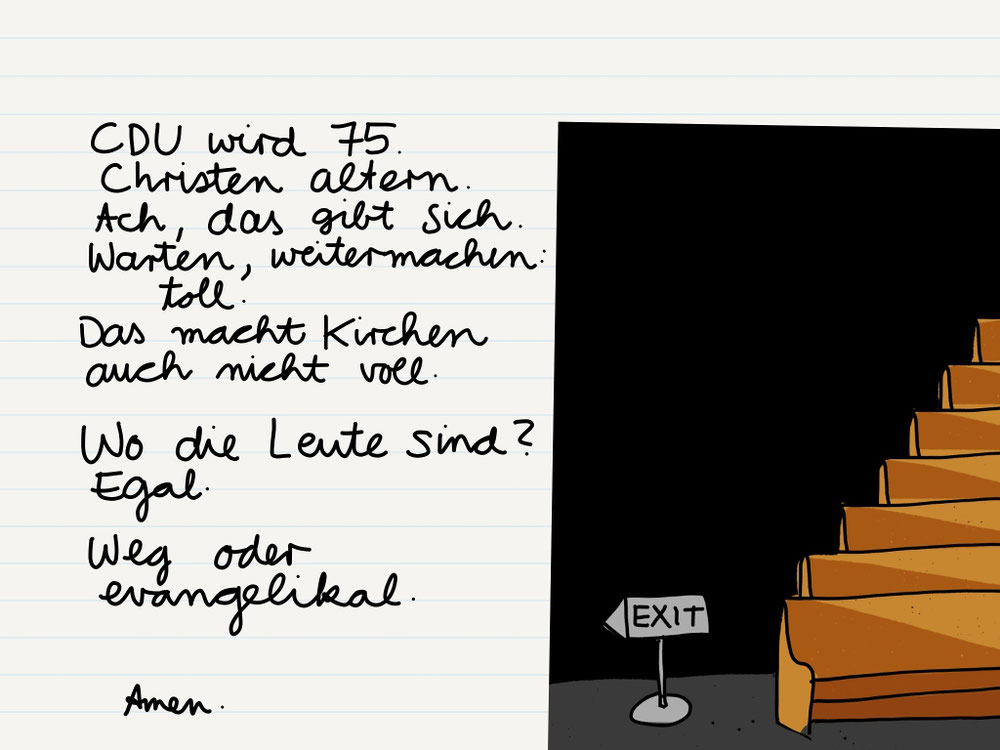 CDU wird 75.
Christen altern.
Ach, das gibt sich.
Warten, weitermachen:
toll.
Das macht Kirchen
auch nicht voll.
Wo die Leute sind?
Egal.
Weg oder
evangelikal.
Amen.
EXIT